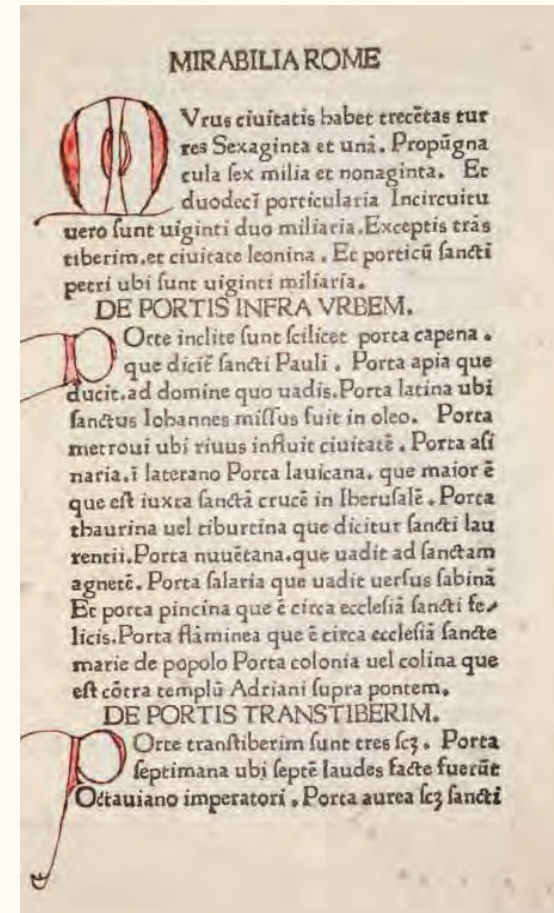 MIRABILIA ROME
MVrus ciuitatis habet trecētas tur
res Sexaginta et unā. Propūgna
cula ſex milia et nonaginta. Et
duodecī porticularia Incircuitu
uero ſunt uiginti duo miliaria.Exceptis trās
tiberim.et ciuitate leonina . Et porticū ſancti
petri ubi ſunt uiginti miliaria.
DE PORTIS INFRA VRBEM.
POrte inclite ſunt ſcilicet porta capena .
que dicit̄ ſancti Pauli . Porta apia que
ducit.ad domine quo uadis.Porta latina ubi
ſanctus Iohannes miſſus fuit in oleo. Porta
metroui ubi riuus influit ciuitatē . Porta aſi
naria.ī laterano Porta lauicana. que maior ē
que eſt iuxta ſanctā crucē in Iheruſalē . Porta
thaurina uel tiburtina que dicitur ſancti lau
rentii.Porta nuuētana.que uadit ad ſanctam
agnetē. Porta ſalaria que uadit uerſus ſabinā
Et porta pincina que ē circa eccleſiā ſancti fe⸗
licis.Porta flāminea que ē circa eccleſiā ſancte
marie de popolo Porta colonia uel colina que
eſt cōtra templū Adriani ſupra pontem.
DE PORTIS TRANSTIBERIM.
POrte tranſtiberim ſunt tres ſcꝫ . Porta
ſeptimana ubi ſeptē laudes facte fuerūt
Octauiano imperatori . Porta aurea ſcꝫ ſancti